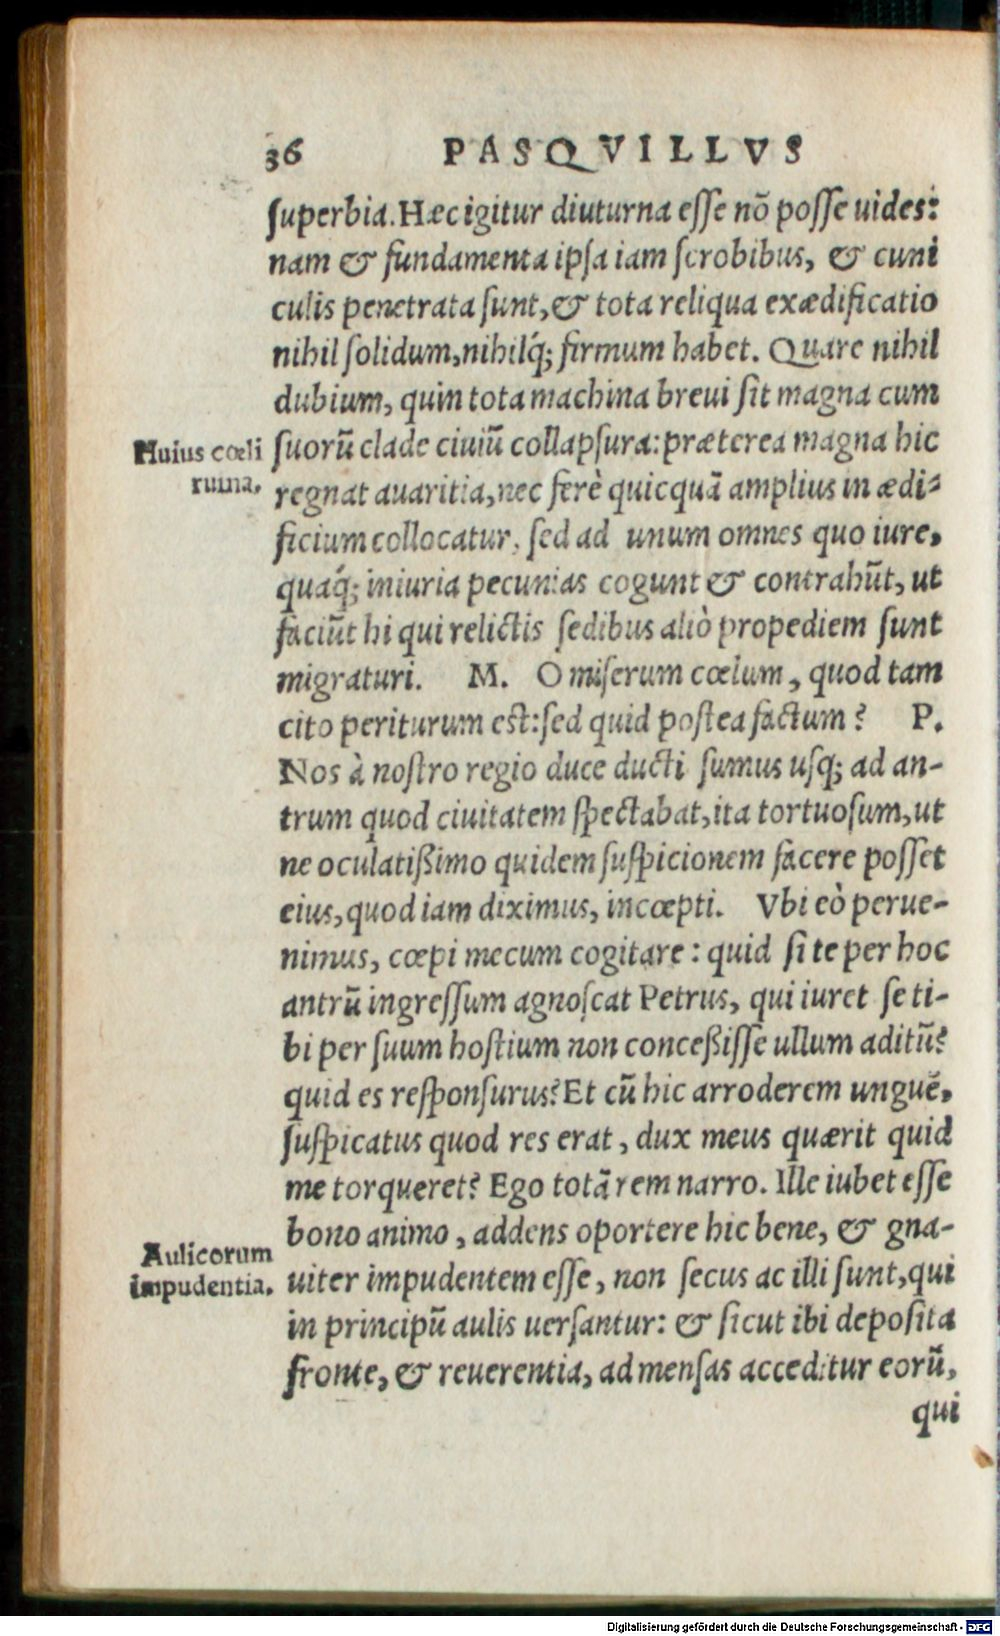 36 PASQVILLVS
superbia. Hæc igitur diuturna esse nõ posse uides:
nam & fundamenta ipsa iam scrobibus, & cuni
culis penetrata sunt, & tota reliqua exædificatio
nihil solidum, nihilq́; firmum habet. Quare nihil
dubium, quin tota machina breui sit magna cum
Huius cœli
ruina.
suorũ clade ciuiũ collapsura: præterea magna hic
regnat auaritia, nec ferè quicquã amplius in ædi-
ficium collocatur, sed ad unum omnes quo iure,
quaq́; iniuria pecunias cogunt & contrahũt, ut
faciũt hi qui relictis sedibus aliò propediem sunt
migraturi. M. O miserum cœlum, quod tam
cito periturum est: sed quid postea factum? P.
Nos à nostro regio duce ducti sumus usq; ad an-
trum quod ciuitatem spectabat, ita tortuosum, ut
ne oculatißimo quidem suspicionem facere posset
eius, quod iam diximus, incœpti. Vbi eò perue-
nimus, cœpi mecum cogitare: quid si te per hoc
antrũ ingressum agnoscat Petrus, qui iuret se ti-
bi per suum hostium non conceßisse ullum aditũ?
quid es responsurus? Et cũ hic arroderem unguẽ,
suspicatus quod res erat, dux meus quærit quid
me torqueret? Ego totã rem narro. Ille iubet esse
bono animo, addens oportere hic bene, & gna-
Aulicorum
impudentia.
uiter impudentem esse, non secus ac illi sunt, qui
in principũ aulis uersantur: & sicut ibi deposita
fronte, & reuerentia, ad mensas acceditur eorũ,
qui
Digitalisierung gefördert durch die Deutsche Forschungsgemeinschaft - DFG